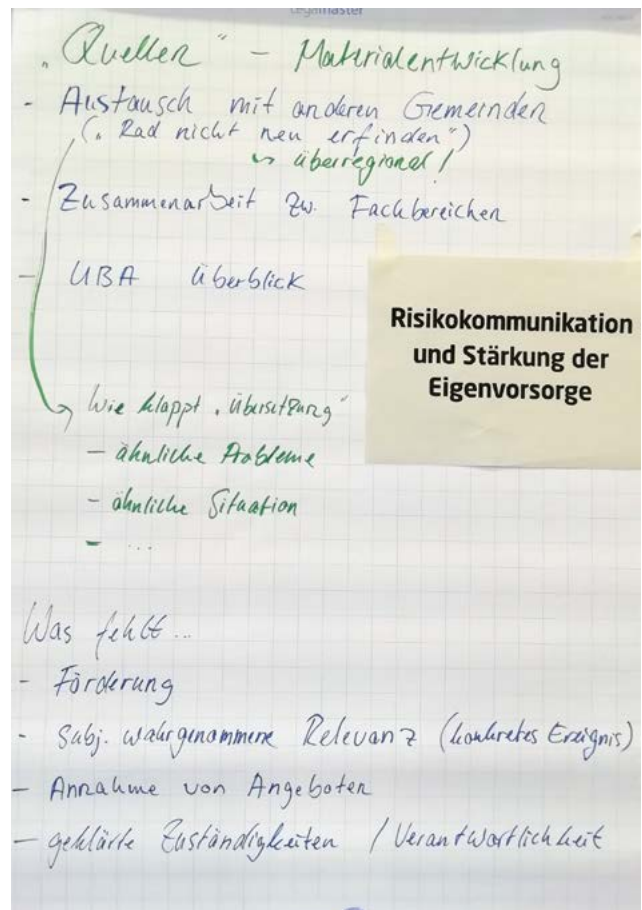 Legamaster
„Quellen" – Materialentwicklung
- Austausch mit anderen Gemeinden
(„Rad nicht neu erfinden")
↳ überregional!
- Zusammenarbeit zw. Fachbereichen
- UBA Überblick
Risikokommunikation
und Stärkung der
Eigenvorsorge
Wie klappt „Übersetzung"
- ähnliche Probleme
- ähnliche Situation
- ...
Was fehlt...
- Förderung
- subj. wahrgenommene Relevanz (konkretes Ereignis)
- Annahme von Angeboten
- geklärte Zuständigkeiten / Verantwortlichkeit